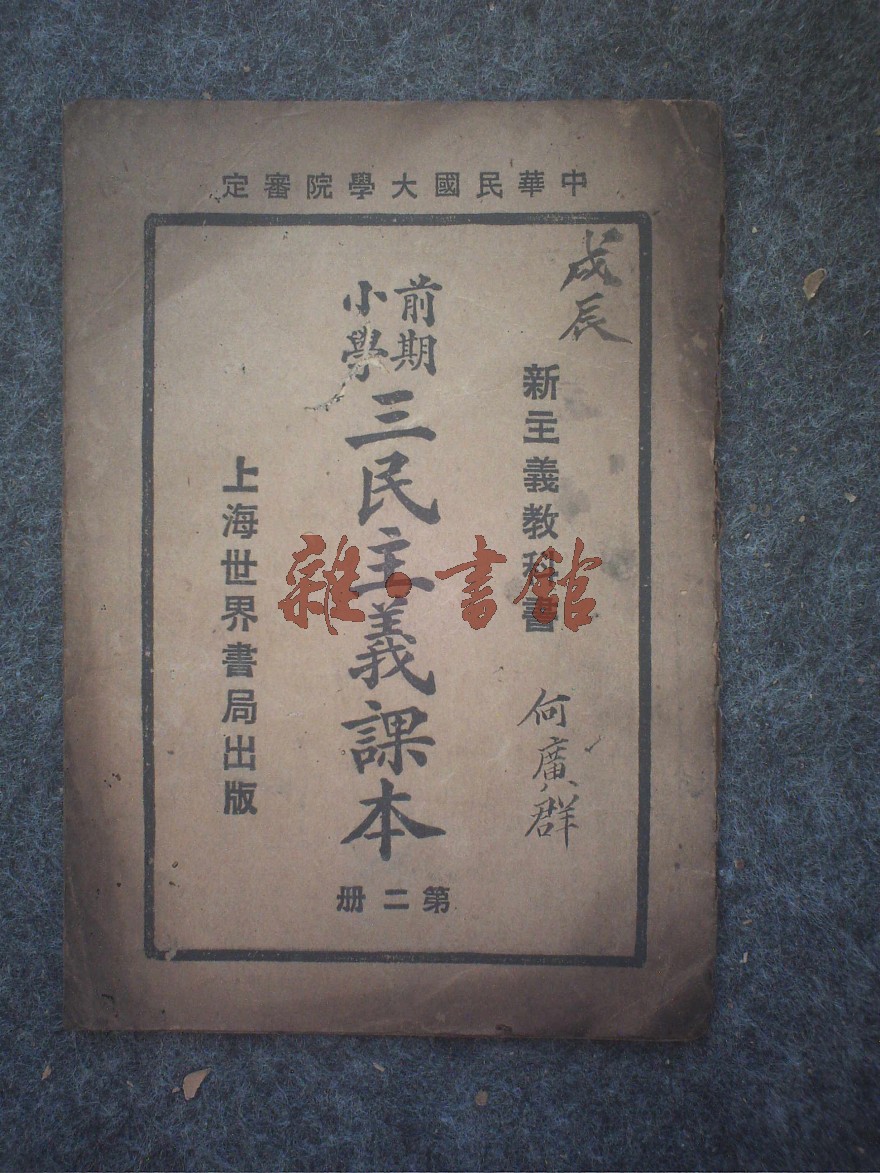 中華民國大學院審定
戊辰
新主義教科書
何廣群
前期
小學
三民主義課本
第二册
上海世界書局出版
雜·書館